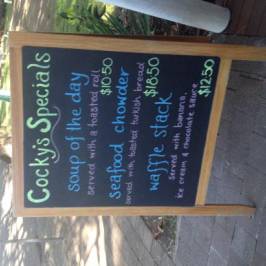 Cocky's Specials
soup of the day
served with a toasted roll
$10.50
seafood chowder
served with toasted turkish bread
$16.50
waffle stack
served with banana,
ice cream & chocolate sauce
$12.50